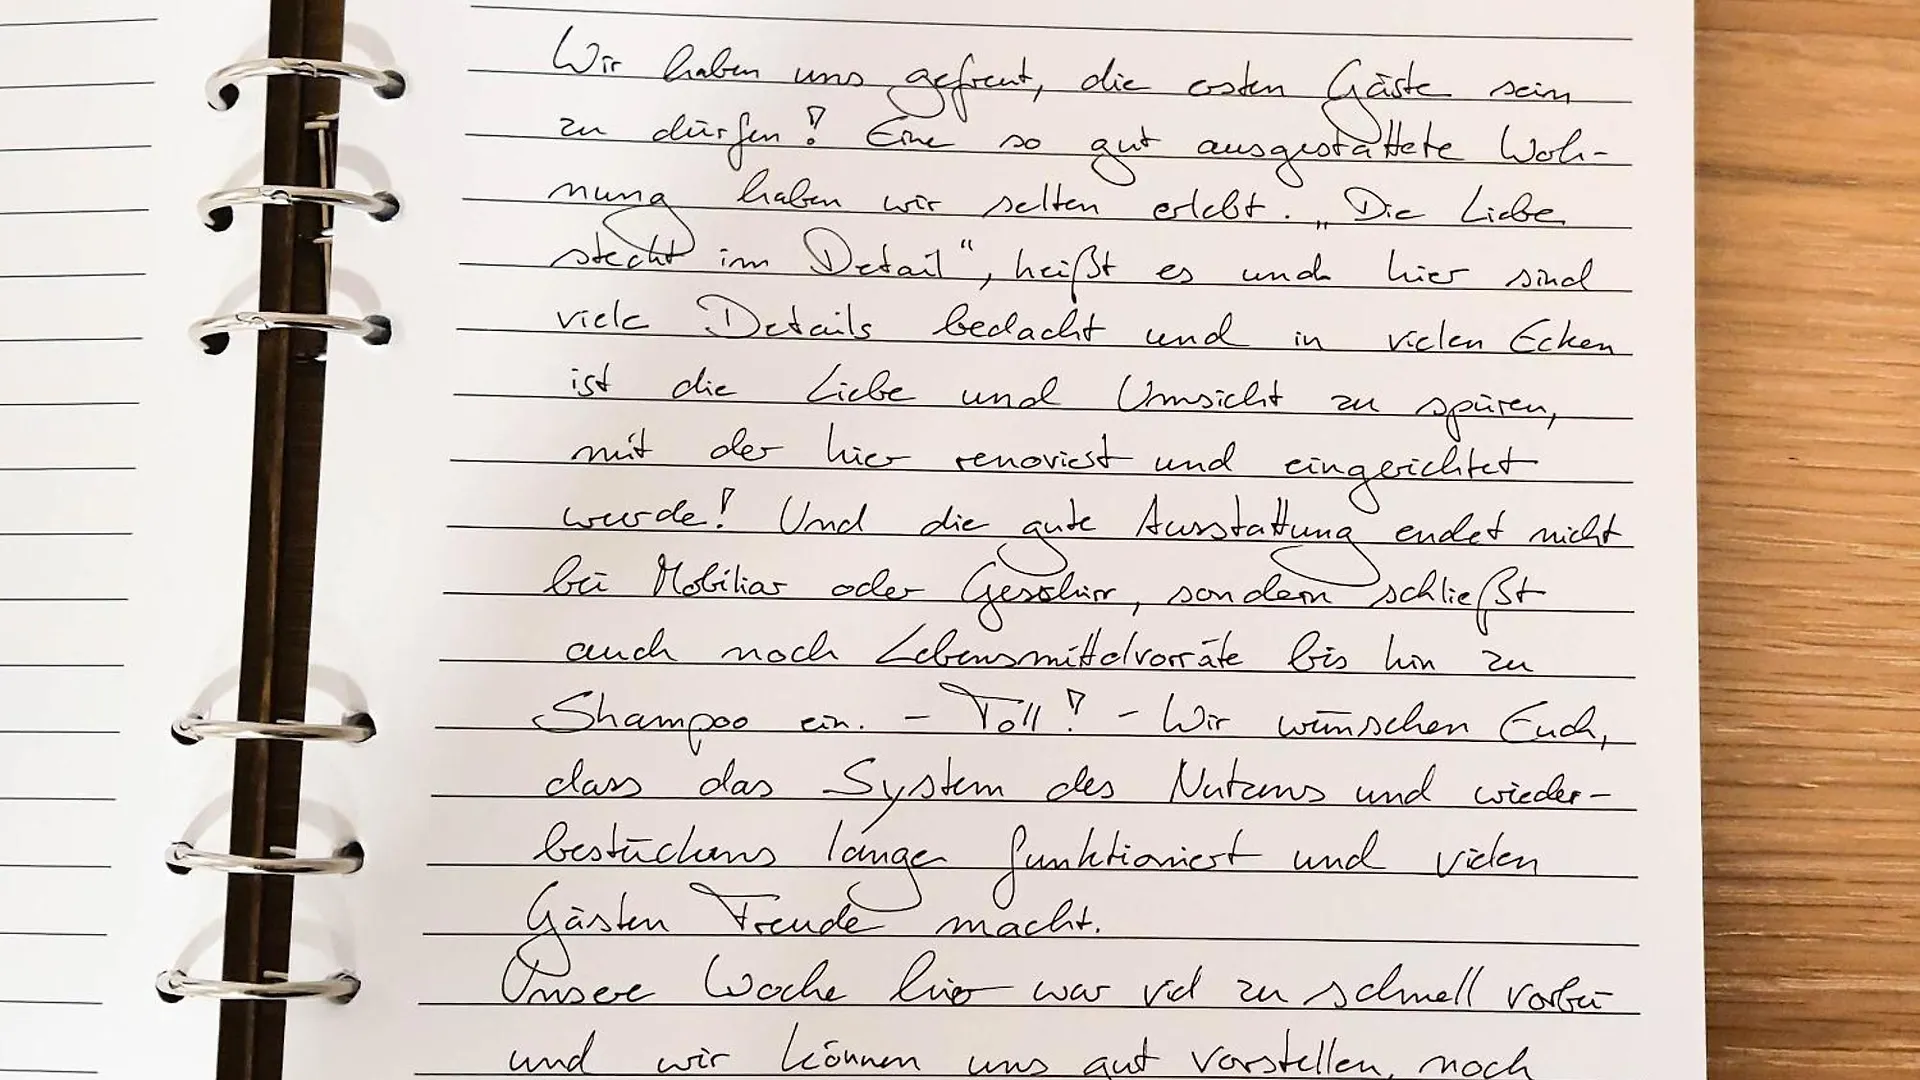 Wir haben uns gefreut, die ersten Gäste sein
zu dürfen! Eine so gut ausgestattete Woh-
nung haben wir selten erlebt. „Die Liebe
steckt im Detail“, heißt es und hier sind
viele Details bedacht und in vielen Ecken
ist die Liebe und Umsicht zu spüren,
mit der hier renoviert und eingerichtet
wurde! Und die gute Ausstattung endet nicht
bei Mobiliar oder Geschirr, sondern schließt
auch noch Lebensmittelvorräte bis hin zu
Shampoo ein. – Toll! – Wir wünschen Euch,
dass das System des Nutzens und wieder-
bestückens lange funktioniert und vielen
Gästen Freude macht.
Unsere Woche hier war viel zu schnell vorbei
und wir können uns gut vorstellen, noch